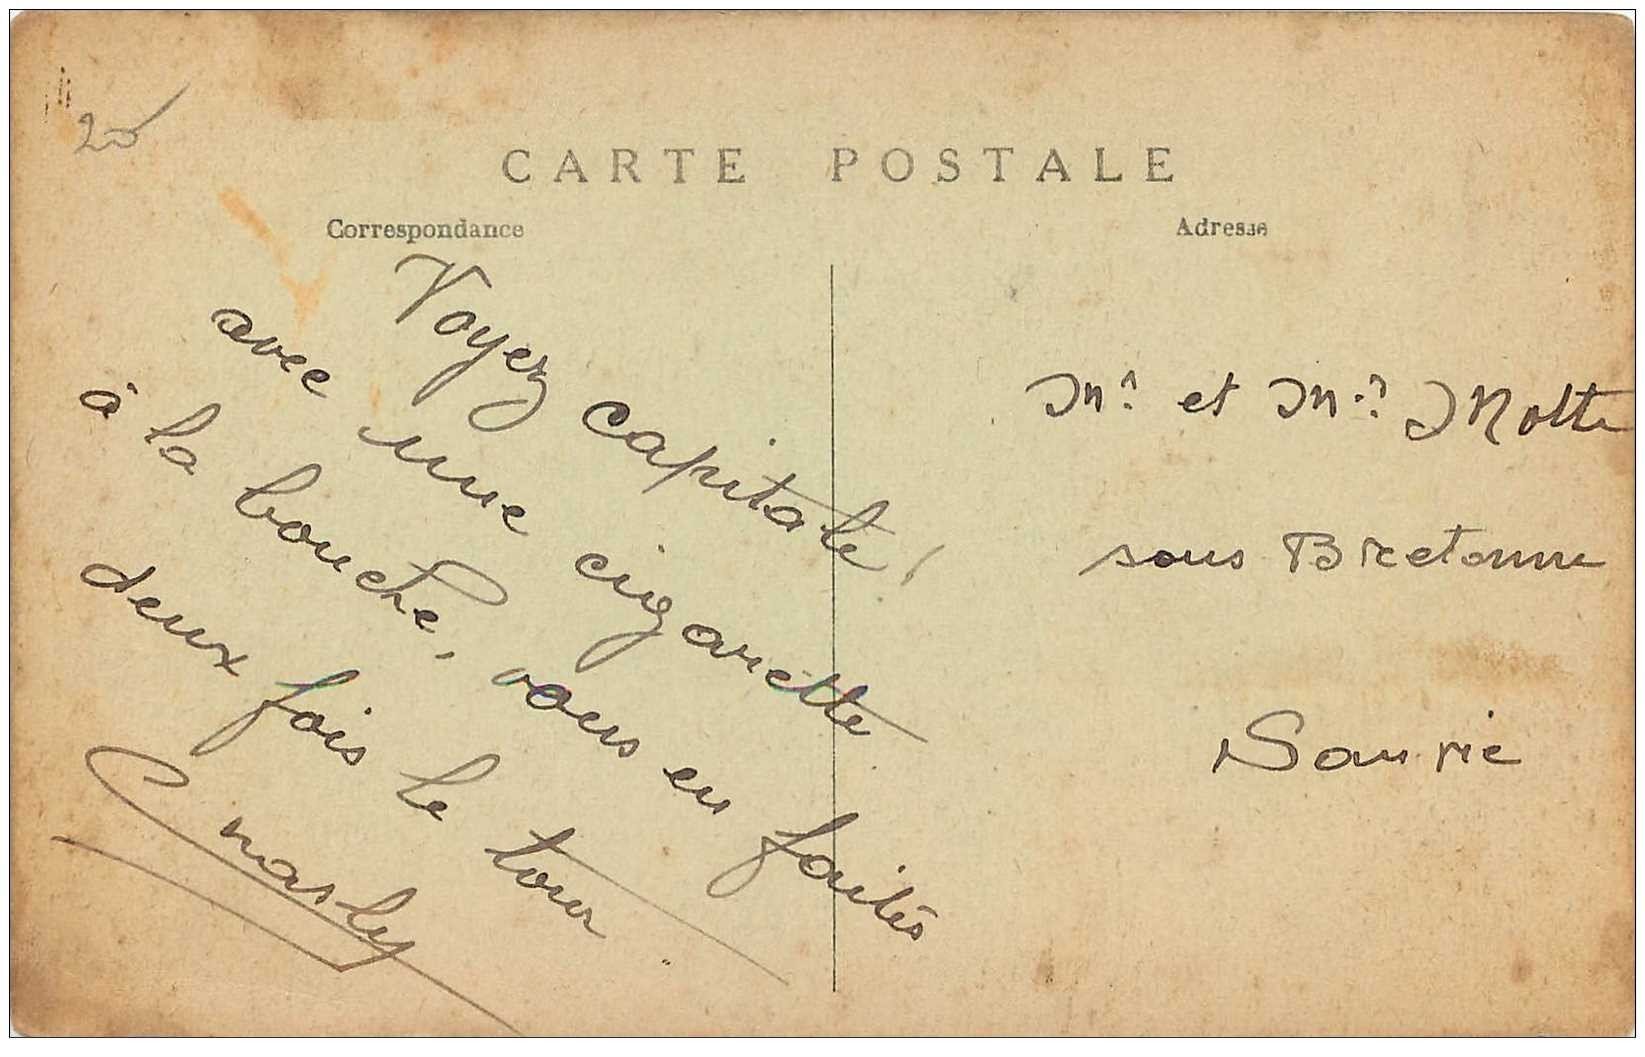 20
CARTE POSTALE
Correspondance
Adresse
Voyez capitale !
avec une cigarette
à la bouche, vous en faites
deux fois le tour
Mr et Mme Motte
sous Bretonne